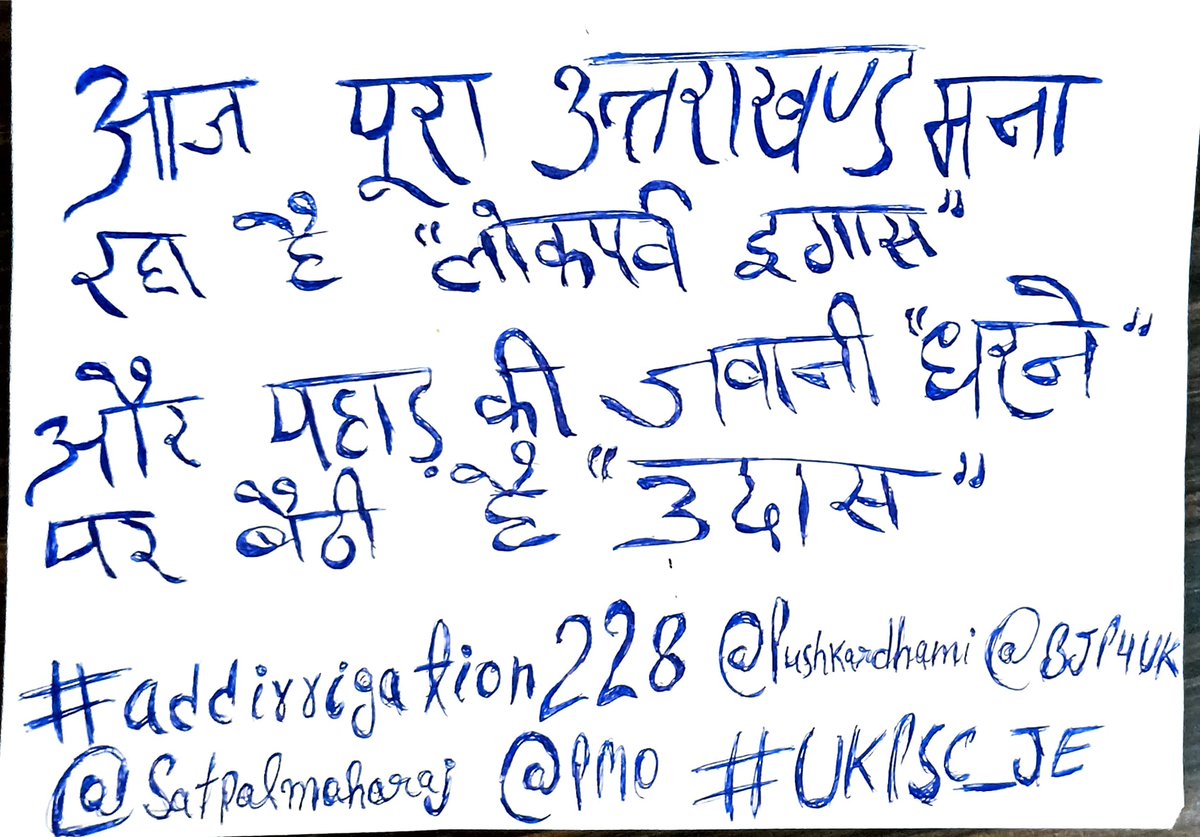 आज पूरा उत्तराखण्ड मना
रहा है "लोकपर्व इगास"
और पहाड़ की जवानी "धरने"
पर बैठी है "उदास"
#addirrigation228 @Pushkardhami @BJP4UK
@Satpalmaharaj @PMO #UKPSC_JE